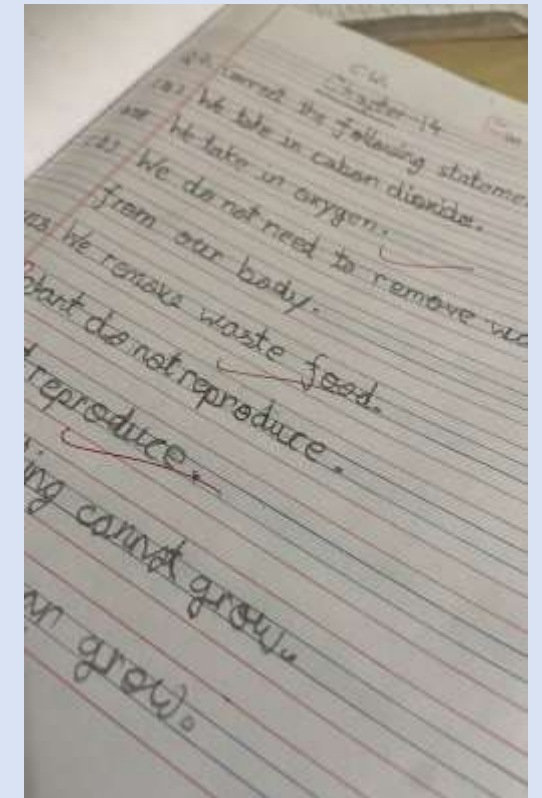 C.W.
Chapter-14
Q2. Correct the following stateme
(a) We take in cabon dioxide.
We take in oxygen.
We do not need to remove
from our body.
We remove waste food.
plant do not reproduce.
reproduce.
ing cannot grow.
grow.